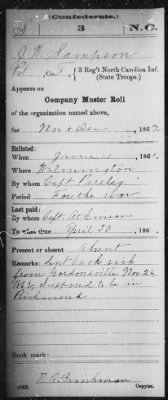 Confederate.
3 N.C.
J. W. Sampson
Pvt, Co. 3 Reg't North Carolina Inf.
(State Troops.)
Appears on
Company Muster Roll
of the organization named above,
for Nov & Dec, 1862
Enlisted:
When June, 1861.
Where Wilmington
By whom Capt Parsley
Period For the war
Last paid:
By whom Capt.
To what time April 30, 186
Present or absent Absent
Remarks: Sent back sick
from Gordonsville Nov 26
1862 Supposed to be in
Richmond
Book mark:
Copyist.